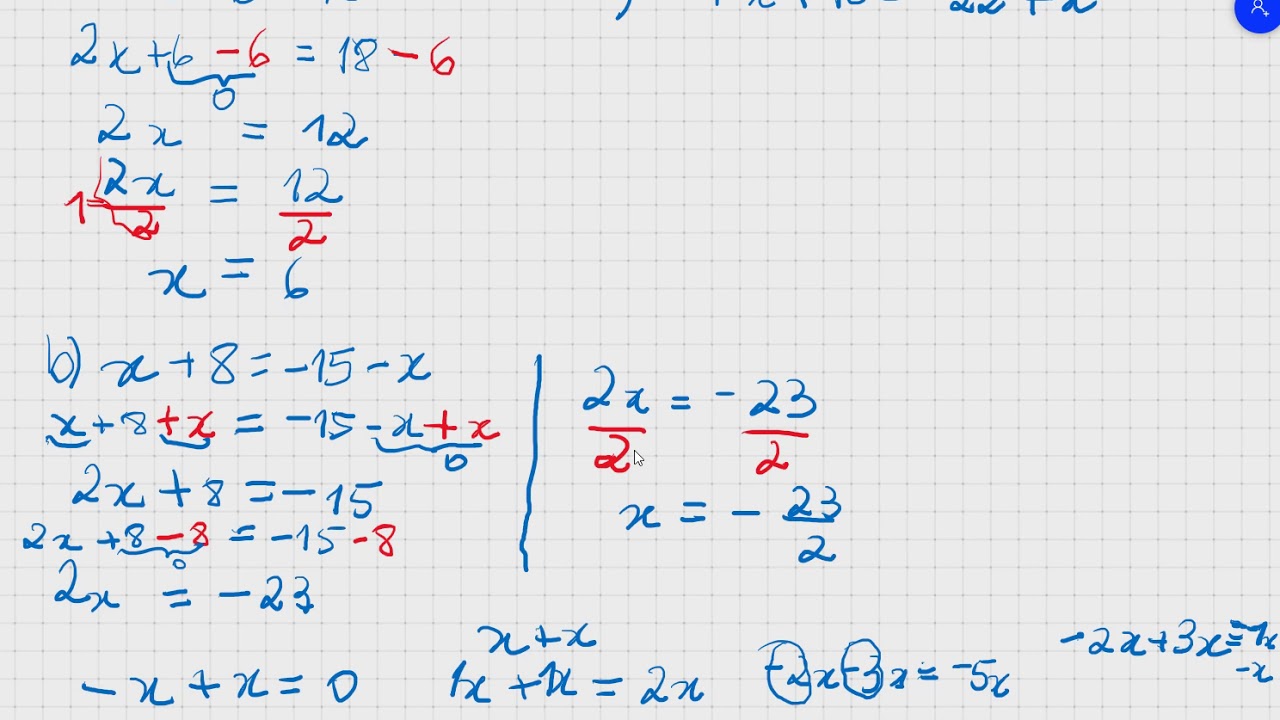 2x+6 - 6 = 18 - 6
0
2x = 12
1 2x/2 = 12/2
x = 6
b) x + 8 = -15 - x
x + 8 + x = -15 - x + x
0
2x + 8 = -15
2x + 8 - 8 = -15 - 8
0
2x = -23
2x/2 = -23/2
x = - 23/2
-x + x = 0
x + x
1x + 1x = 2x
-2x-3x = -5x
-2x+3x = 1x
-x